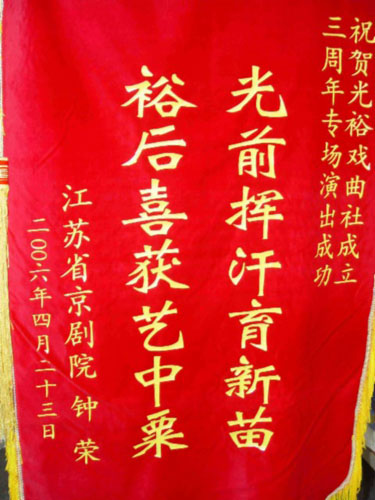 祝贺光裕戏曲社成立
三周年专场演出成功
光前挥汗育新苗
裕后喜获艺中粟
江苏省京剧院 钟荣
二〇〇六年四月二十三日